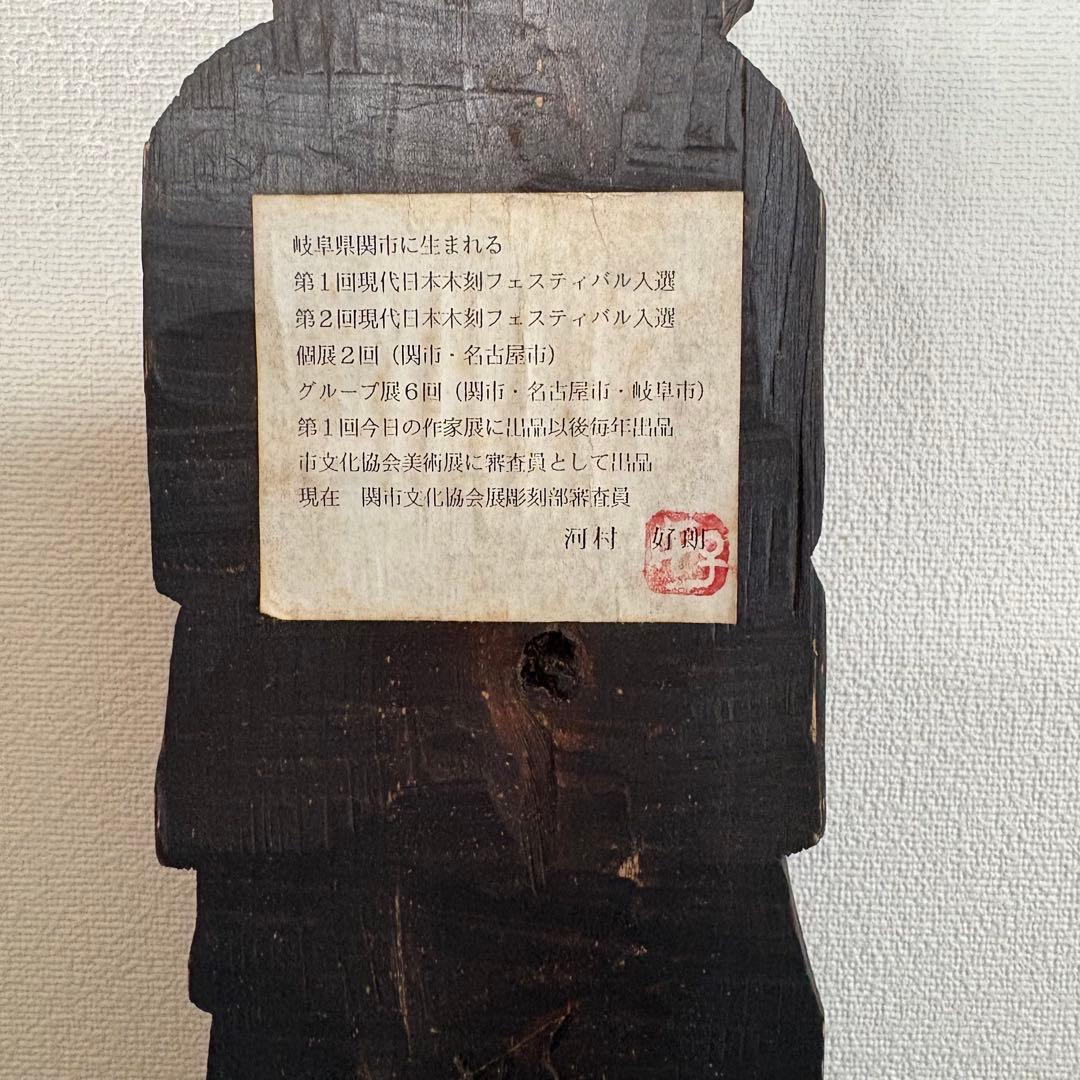 岐阜県関市に生まれる
第１回現代日本木刻フェスティバル入選
第２回現代日本木刻フェスティバル入選
個展２回（関市・名古屋市）
グループ展６回（関市・名古屋市・岐阜市）
第１回今日の作家展に出品以後毎年出品
市文化協会美術展に審査員として出品
現在　関市文化協会展彫刻部審査員
河村　好朗